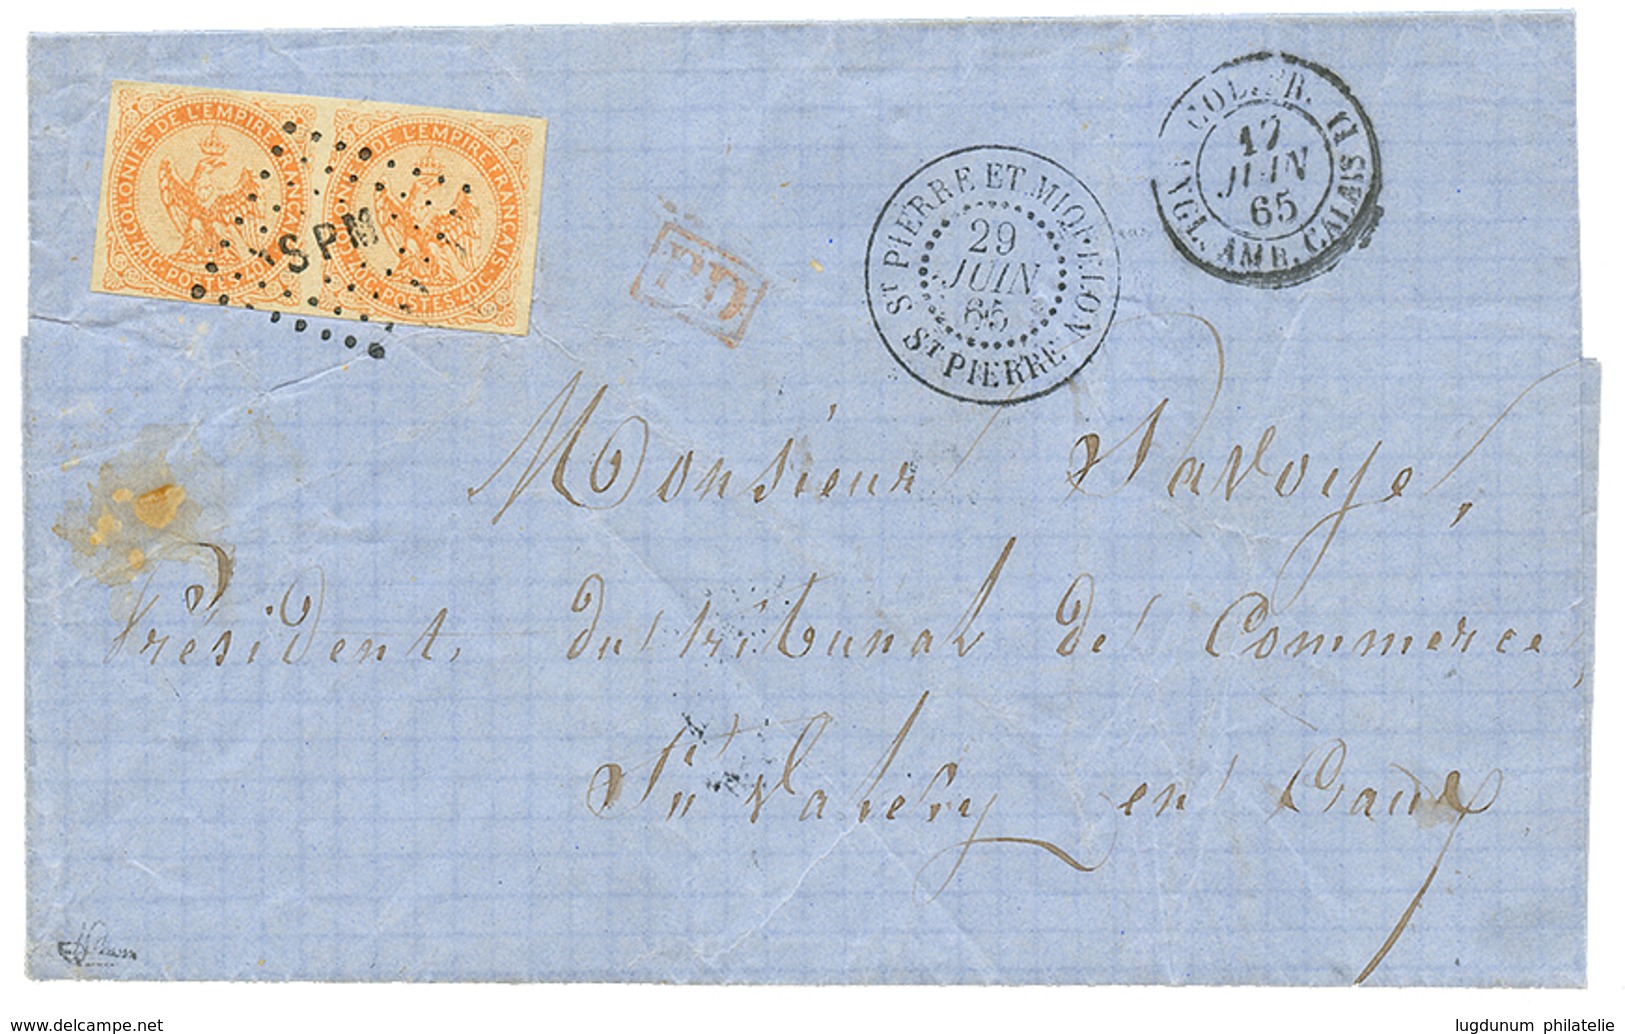 COLONIES DE L'EMPIRE FRANÇAIS
40C·POSTES·40C
COLONIES DE L'EMPIRE FRANÇAIS
40C·POSTES·40C·
SPM
PD
ST PIERRE ET MIQUELON
29
JUIN
65
ST PIERRE
COL. FR.
ANGL. AMB. CALAIS D
17
JUIN
65
Monsieur Savoye,
Président du tribunal de Commerce,
St Valéry en Caux
www.delcampe.net
lugdunum philatelie